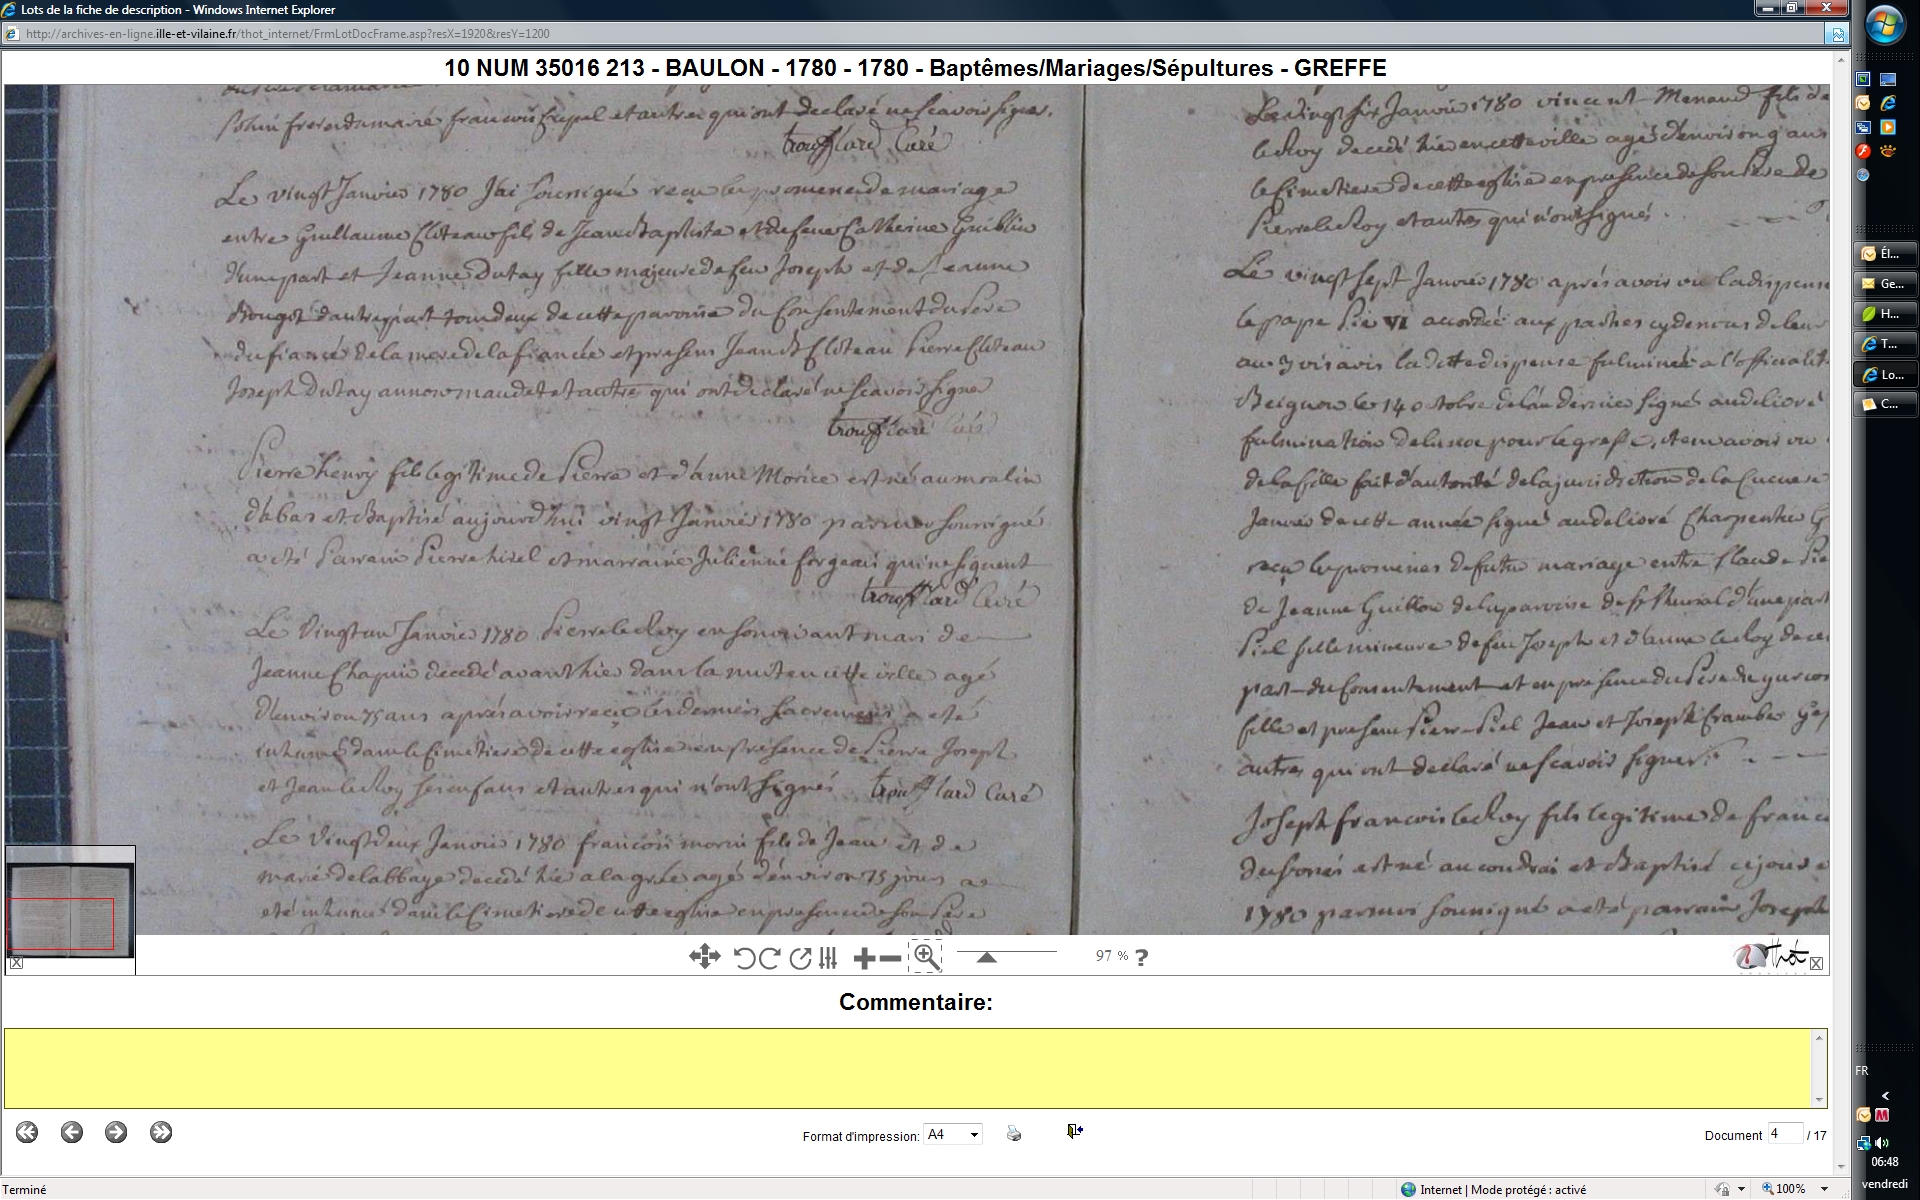 Lots de la fiche de description - Windows Internet Explorer
http://archives-en-ligne.ille-et-vilaine.fr/thot_internet/FrmLotDocFrame.asp?resX=1920&resY=1200
10 NUM 35016 213 - BAULON - 1780 - 1780 - Baptêmes/Mariages/Sépultures - GREFFE
frere du marié francois Crepel et autres qui ont declaré ne scavoir signer.
troufflard Curé
Le vingt Janvier 1780 J'ai soussigné recu les promesses de mariage
entre Guillaume Cloteau fils de Jean Baptiste et de feue Catherine Guiblin
d'une part et Jeanne Dutay fille majeure de feu Joseph et de Jeanne
d'autre part tous deux de cette paroisse du Consentement du Pere
du fiancé de la mere de la fiancée et presens Jean Bt Cloteau Pierre Cloteau
Joseph Dutay et autres qui ont declaré ne scavoir signer
troufflard Curé
Pierre henry fils legitime de Pierre et d'anne Morice est né au moulin
d'abas et Baptisé aujourd'hui vingt Janvier 1780 par moi soussigné
a eté Parrain Pierre hirel et marraine Julienne forgeais qui ne signent
troufflard Curé
Le Vingt un Janvier 1780 Pierre le Roy en son vivant mari de
Jeanne Chapin decedé avant hier dans la nuit en cette ville agé
d'environ 75 ans aprés avoir recu les derniers sacremens a eté
inhumé dans le Cimetiere de cette eglise en presence de Pierre Joseph
et Jean le Roy ses enfans et autres qui n'ont signés troufflard Curé
Le Vingt deux Janvier 1780 francois morin fils de Jean et de
marie delabbaye decedé hier a la agé d'environ 15 jours a
eté inhumé dans le Cimetiere de cette eglise en presence de son Pere
Le vingt six Janvier 1780 vincent Menaud fils de
le Roy decedé hier en cette ville agé d'environ 9 ans
le Cimetiere de cette eglise en presence de son Pere de
Pierre le Roy et autres qui n'ont signés.
Le vingt sept Janvier 1780 aprés avoir vu la dispense
le pape Pie VI accordée aux parties cy denous de leur
au 3 la ditte dispense fulminée a l'officialité
Beignon le 14 octobre de l'an dernier signé audelioré
fulmination pour le greffe, et en avoir vu
de la fille fait d'autorité de la jurisdiction de la
Janvier de cette année signé audelioré Charpentier G
recu les promesses de futur mariage entre Claude
de Jeanne Guillou de la paroisse de St Thurial d'une part
Piel fille mineure de feu Joseph et d'anne le Roy de ce
part du Consentement et en presence du Pere du garcon
fille et presens Pierre Piel Jean et Joseph
autres qui ont declaré ne scavoir signer
Joseph francois le Roy fils legitime de Franc
est né au coudrai et Baptisé ce jour
1780 par moi soussigné a eté parrain Joseph
97 % ?
Thot
Commentaire:
Format d'impression: A4
Document 4 / 17
Terminé
Internet | Mode protégé : activé
100%
Él...
Ge...
H...
T...
Lo...
C...
FR
06:48
vendredi